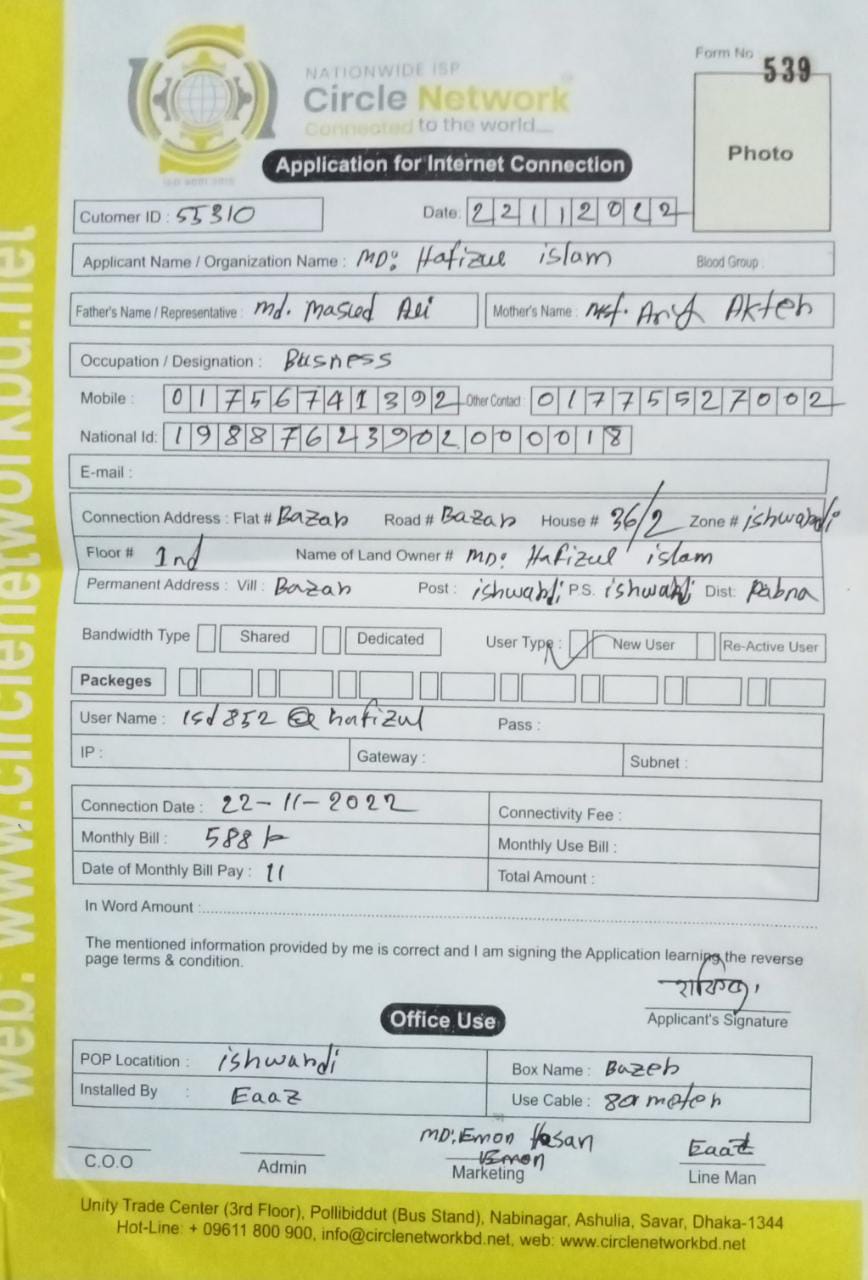 Form No 539
NATIONWIDE ISP
Circle Network
Connected to the world....
ISO 9001:2015
Photo
Application for Internet Connection
Cutomer ID : 55310 Date: 22112022
Applicant Name / Organization Name : MD: Hafizul islam Blood Group :
Father's Name / Representative : md. Masud Ali Mother's Name : Mst. Akter
Occupation / Designation : Busness
Mobile : 01756741392 Other Contact : 01775527002
National Id: 19887623902000018
E-mail :
Connection Address : Flat # Bazar Road # Bazar House # 36/2 Zone # ishwardi
Floor # 1nd Name of Land Owner # MD: Hafizul islam
Permanent Address : Vill : Bazar Post : ishwardi P.S. ishwardi Dist: Pabna
Bandwidth Type Shared Dedicated User Type : New User Re-Active User
Packeges
User Name : isd852@hafizul Pass :
IP : Gateway : Subnet :
Connection Date : 22-11-2022 Connectivity Fee :
Monthly Bill : 588 Monthly Use Bill :
Date of Monthly Bill Pay : 11 Total Amount :
In Word Amount :
The mentioned information provided by me is correct and I am signing the Application learning the reverse
page terms & condition.
Applicant's Signature
Office Use
POP Locatition : ishwardi Box Name : Bazer
Installed By : Eaaz Use Cable : 80 meter
MD: Emon Hasan
Emon Eaaz
C.O.O Admin Marketing Line Man
Unity Trade Center (3rd Floor), Pollibiddut (Bus Stand), Nabinagar, Ashulia, Savar, Dhaka-1344
Hot-Line: + 09611 800 900, info@circlenetworkbd.net, web: www.circlenetworkbd.net
web: www.circlenetworkbd.net